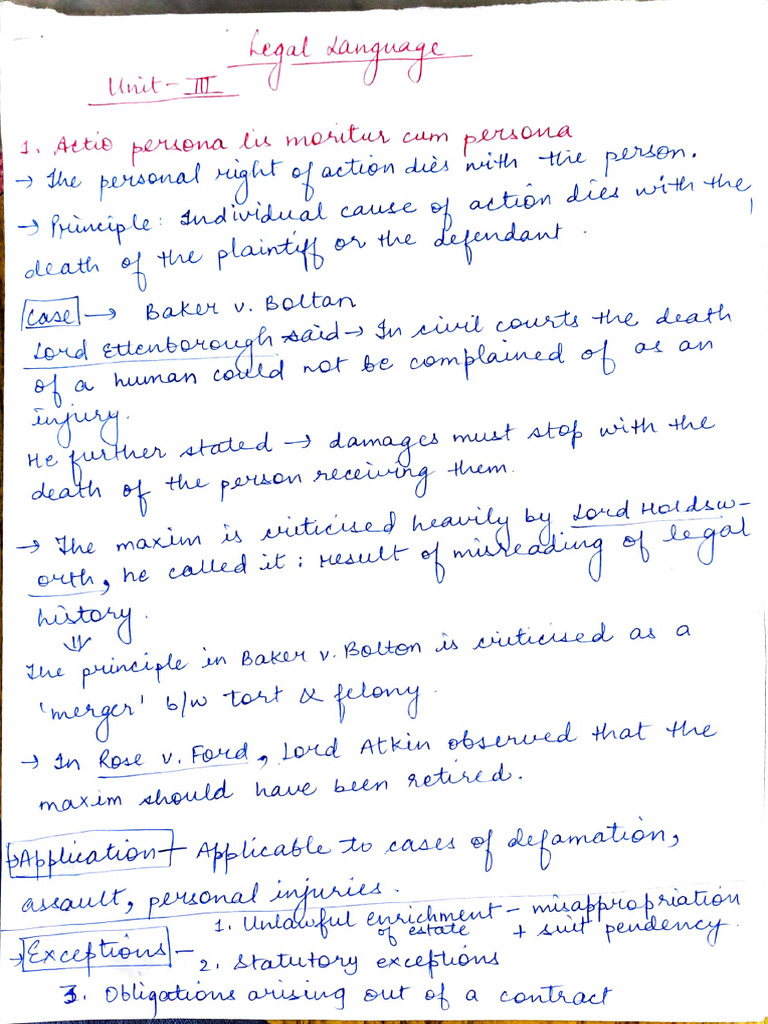 Legal Language
Unit - III
1. Actio persona lis moritur cum persona
→ The personal right of action dies with the person.
→ Principle: Individual cause of action dies with the
death of the plaintiff or the defendant.
Case → Baker v. Boltan
Lord Ettenborough said → In civil courts the death
of a human could not be complained of as an
injury.
He further stated → damages must stop with the
death of the person receiving them.
→ The maxim is criticised heavily by Lord Holdsw-
orth, he called it: result of misreading of legal
history.
⇓
The principle in Baker v. Bolton is criticised as a
'merger' b/w tort & felony.
→ In Rose v. Ford, Lord Atkin observed that the
maxim should have been retired.
→ Application - Applicable to cases of defamation,
assault, personal injuries.
→ Exceptions - 1. Unlawful enrichment - misappropriation
of estate + suit pendency.
2. Statutory exceptions
3. Obligations arising out of a contract